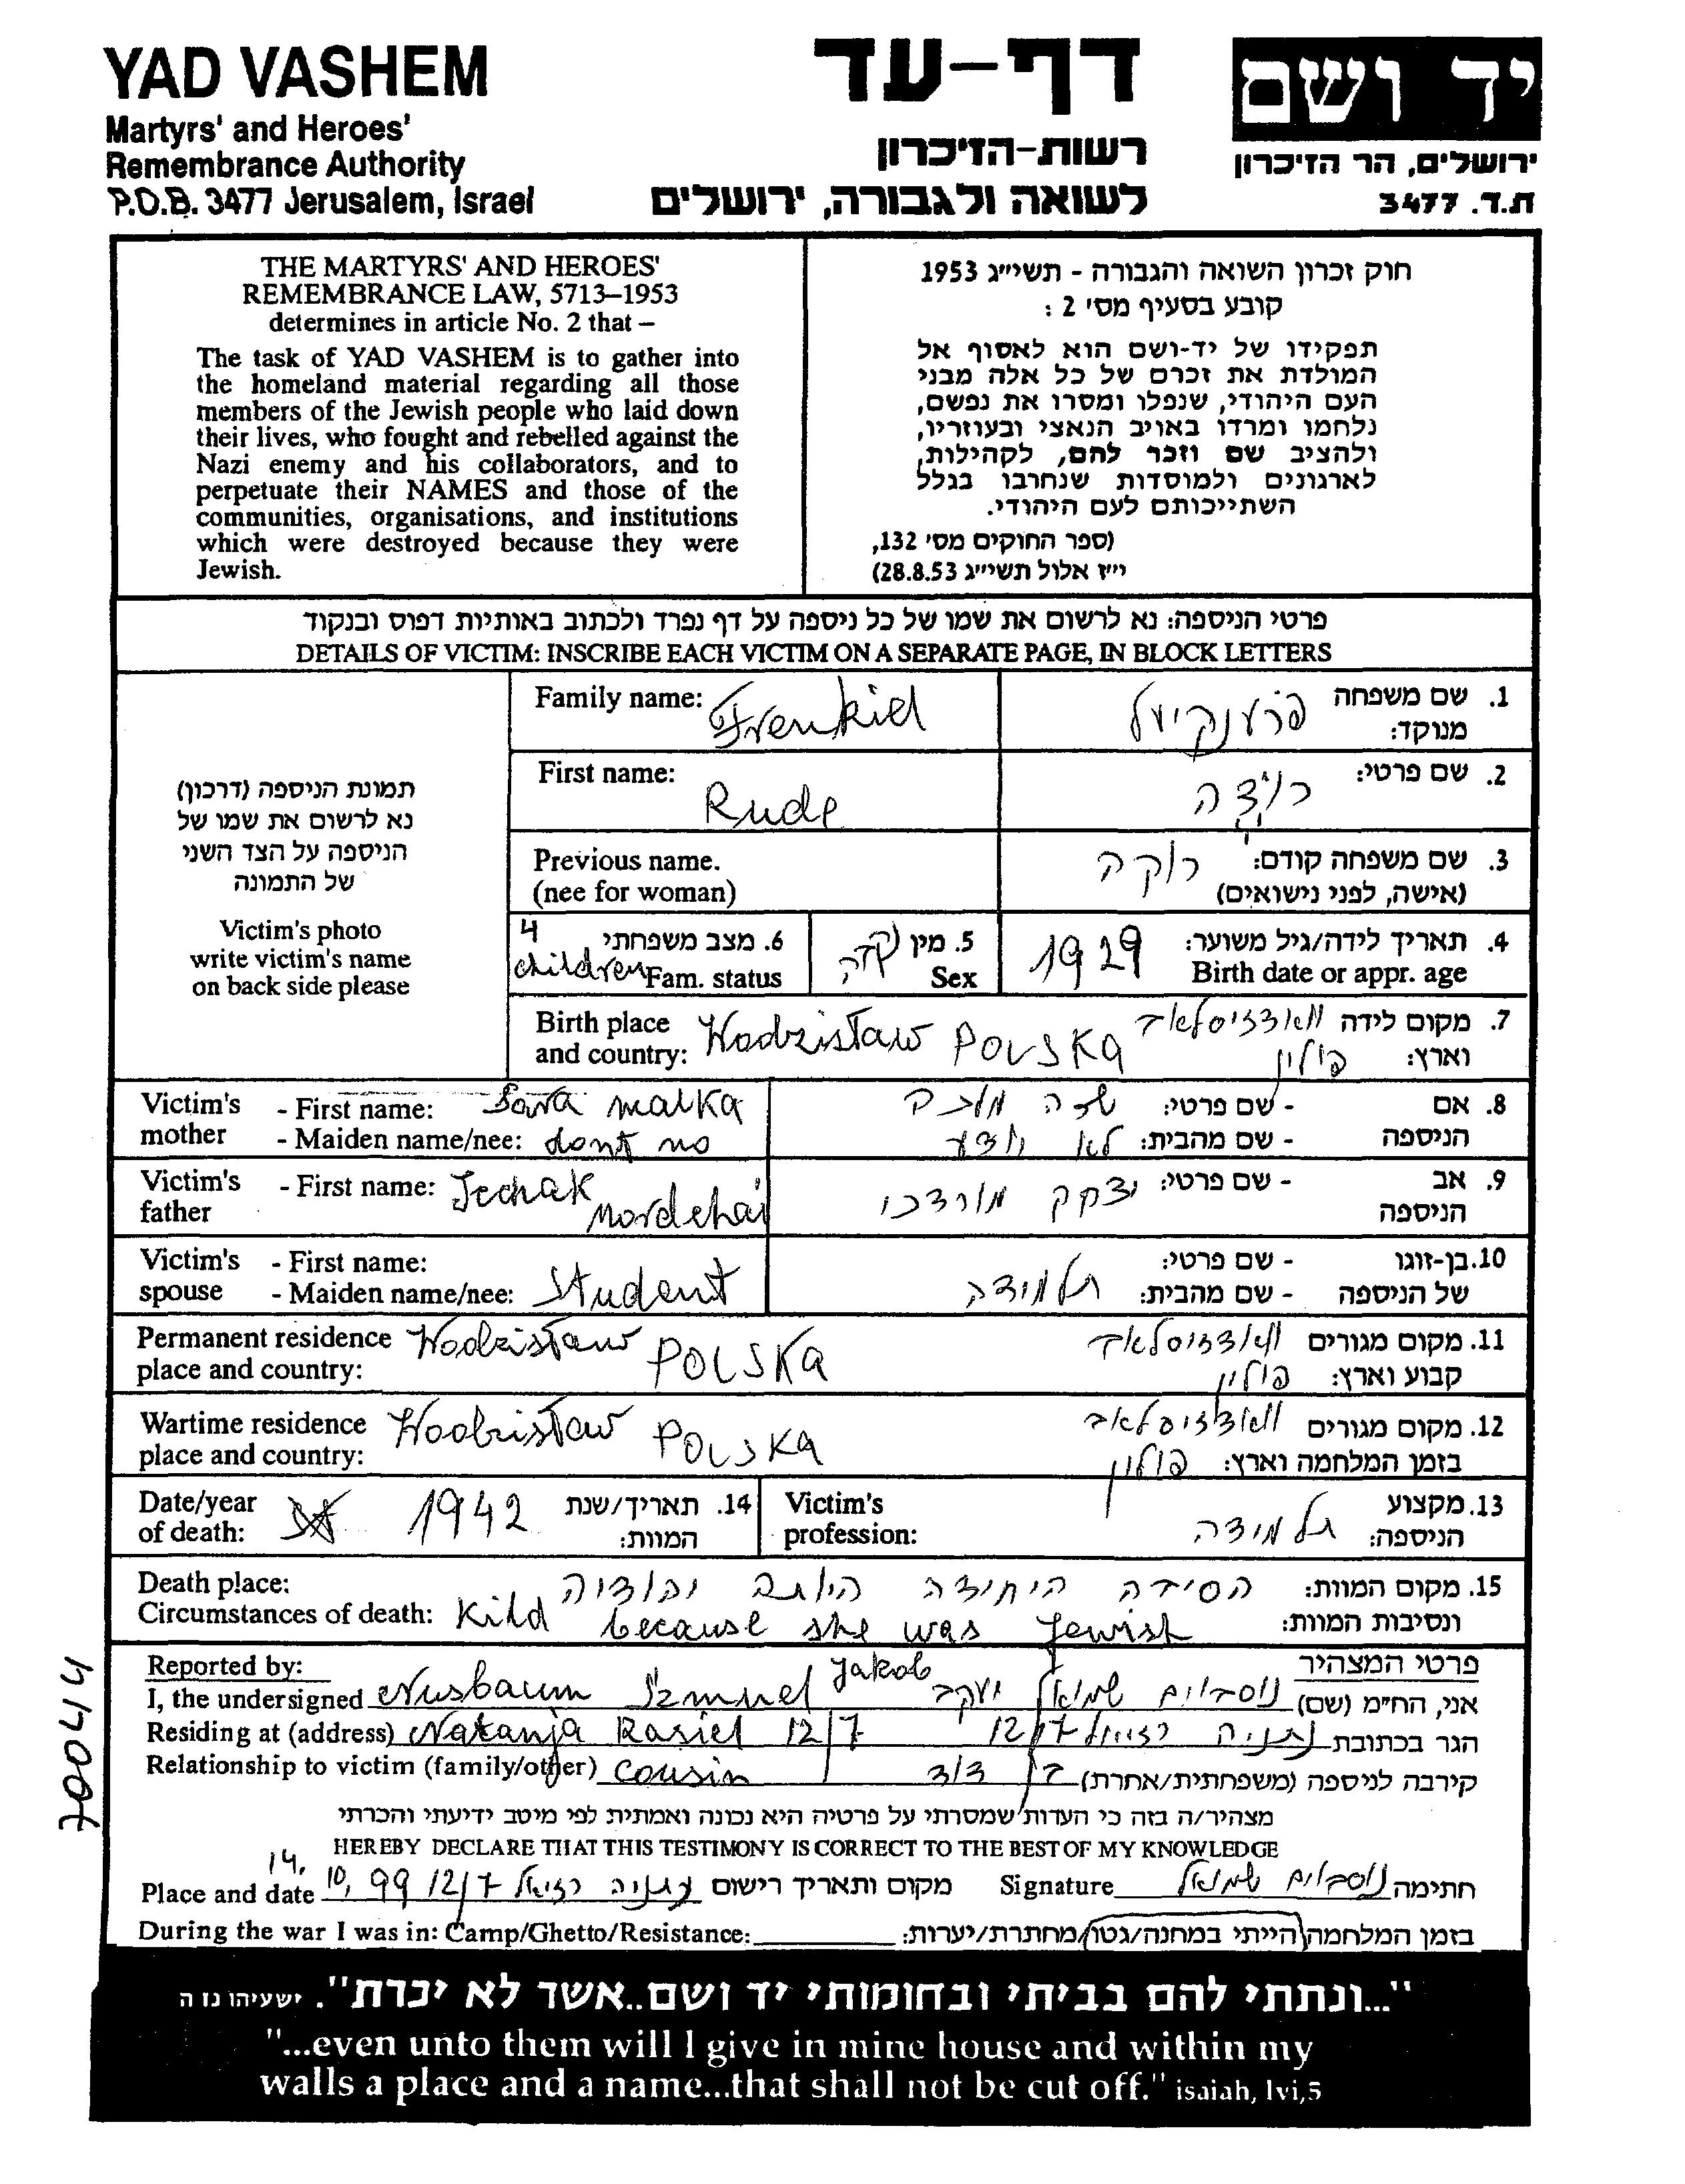 YAD VASHEM
Martyrs' and Heroes'
Remembrance Authority
P.O.B. 3477 Jerusalem, Israel
דף-עד
רשות-הזיכרון
לשואה ולגבורה, ירושלים
יד ושם
ירושלים, הר הזיכרון
ת.ד. 3477
THE MARTYRS' AND HEROES'
REMEMBRANCE LAW, 5713–1953
determines in article No. 2 that –
The task of YAD VASHEM is to gather into
the homeland material regarding all those
members of the Jewish people who laid down
their lives, who fought and rebelled against the
Nazi enemy and his collaborators, and to
perpetuate their NAMES and those of the
communities, organisations, and institutions
which were destroyed because they were
Jewish.
חוק זכרון השואה והגבורה - תשי״ג 1953
קובע בסעיף מס' 2 :
תפקידו של יד-ושם הוא לאסוף אל
המולדת את זכרם של כל אלה מבני
העם היהודי, שנפלו ומסרו את נפשם,
נלחמו ומרדו באויב הנאצי ובעוזריו,
ולהציב שם וזכר להם, לקהילות,
לארגונים ולמוסדות שנחרבו בגלל
השתייכותם לעם היהודי.
(ספר החוקים מס' 132,
י״ז אלול תשי״ג 28.8.53)
פרטי הניספה: נא לרשום את שמו של כל ניספה על דף נפרד ולכתוב באותיות דפוס ובנקוד
DETAILS OF VICTIM: INSCRIBE EACH VICTIM ON A SEPARATE PAGE, IN BLOCK LETTERS
תמונת הניספה (דרכון)
נא לרשום את שמו של
הניספה על הצד השני
של התמונה
Victim's photo
write victim's name
on back side please
Family name: Frenkiel
1. שם משפחה פרענקיעל
מנוקד:
First name: Rude
2. שם פרטי:
Previous name.
(nee for woman)
3. שם משפחה קודם: רוקה
(אישה, לפני נישואים)
4 children
6. מצב משפחתי
Fam. status
5. מין
Sex
4. תאריך לידה/גיל משוער: 1929
Birth date or appr. age
Birth place
and country: Wodzistaw POLSKA
7. מקום לידה וואודזיסלאב
וארץ: פולין
Victim's mother
- First name: Sara malka
- Maiden name/nee: dont no
8. אם הניספה
- שם פרטי: שרה מלכה
- שם מהבית: לא יודע
Victim's father
- First name: Jechak Mordehai
9. אב הניספה
- שם פרטי: יצחק מורדכי
Victim's spouse
- First name:
- Maiden name/nee: Student
10. בן-זוגו של הניספה
- שם פרטי:
- שם מהבית: תלמידה
Permanent residence
place and country: Wodzistaw POLSKA
11. מקום מגורים וואודזיסלאב
קבוע וארץ: פולין
Wartime residence
place and country: Wodzistaw POLSKA
12. מקום מגורים וואודזיסלאב
בזמן המלחמה וארץ: פולין
Date/year
of death: 1942
14. תאריך/שנת
המוות:
Victim's
profession:
13. מקצוע
הניספה: תלמידה
Death place:
15. מקום המוות: הסיבה היחידה היותה יהודיה
Circumstances of death: Kild because she was Jewish
ונסיבות המוות:
Reported by:
פרטי המצהיר
I, the undersigned Nusbaum Szmuel Jakob
אני, החי״מ (שם) נוסבוים שמואל יעקב
Residing at (address) Natanja Rasiel 12/7
הגר בכתובת נתניה רזיאל 12/7
Relationship to victim (family/other) cousin
קירבה לניספה (משפחתית/אחרת) בן דוד
מצהיר/ה בזה כי העדות שמסרתי על פרטיה היא נכונה ואמתית לפי מיטב ידיעתי והכרתי
HEREBY DECLARE THAT THIS TESTIMONY IS CORRECT TO THE BEST OF MY KNOWLEDGE
Place and date 14. 10, 99 12/7 נתניה רזיאל מקום ותאריך רישום
Signature נוסבוים שמואל חתימה
During the war I was in: Camp/Ghetto/Resistance:
בזמן המלחמה הייתי במחנה/גטו/מחתרת/יערות:
"...ונתתי להם בביתי ובחומותי יד ושם..אשר לא יכרת". ישעיהו נו ה
"...even unto them will I give in mine house and within my
walls a place and a name...that shall not be cut off." isaiah, lvi,5